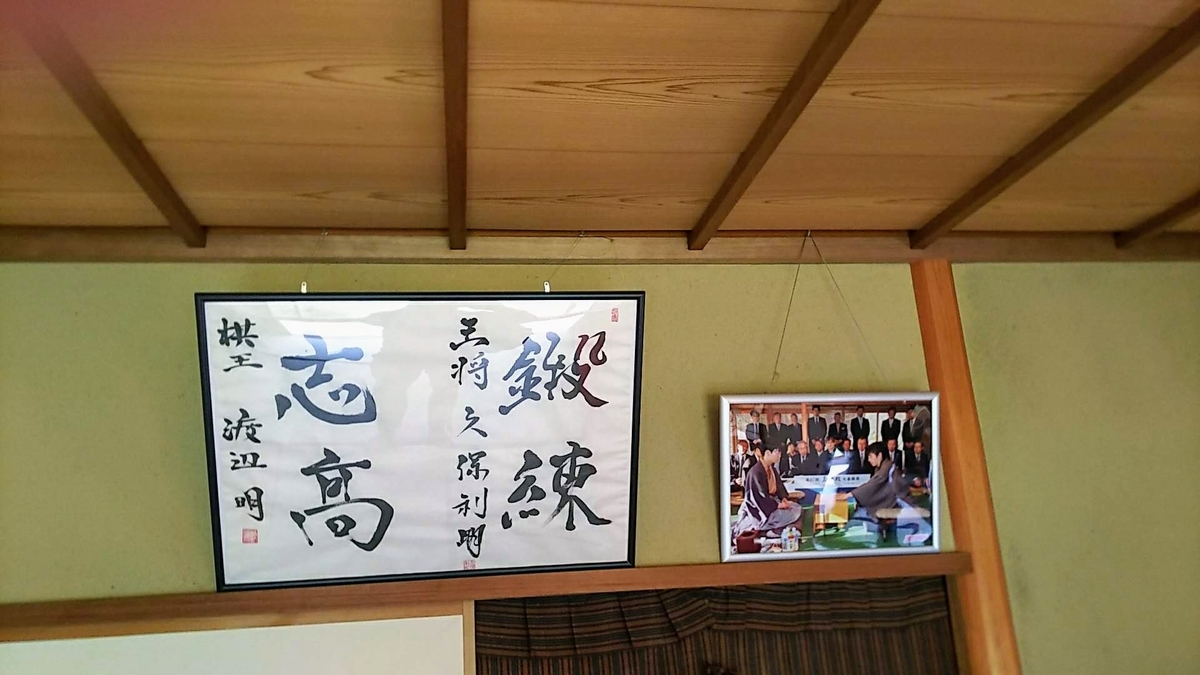 鍛練
王将 久保利明
志高
棋王 渡辺明